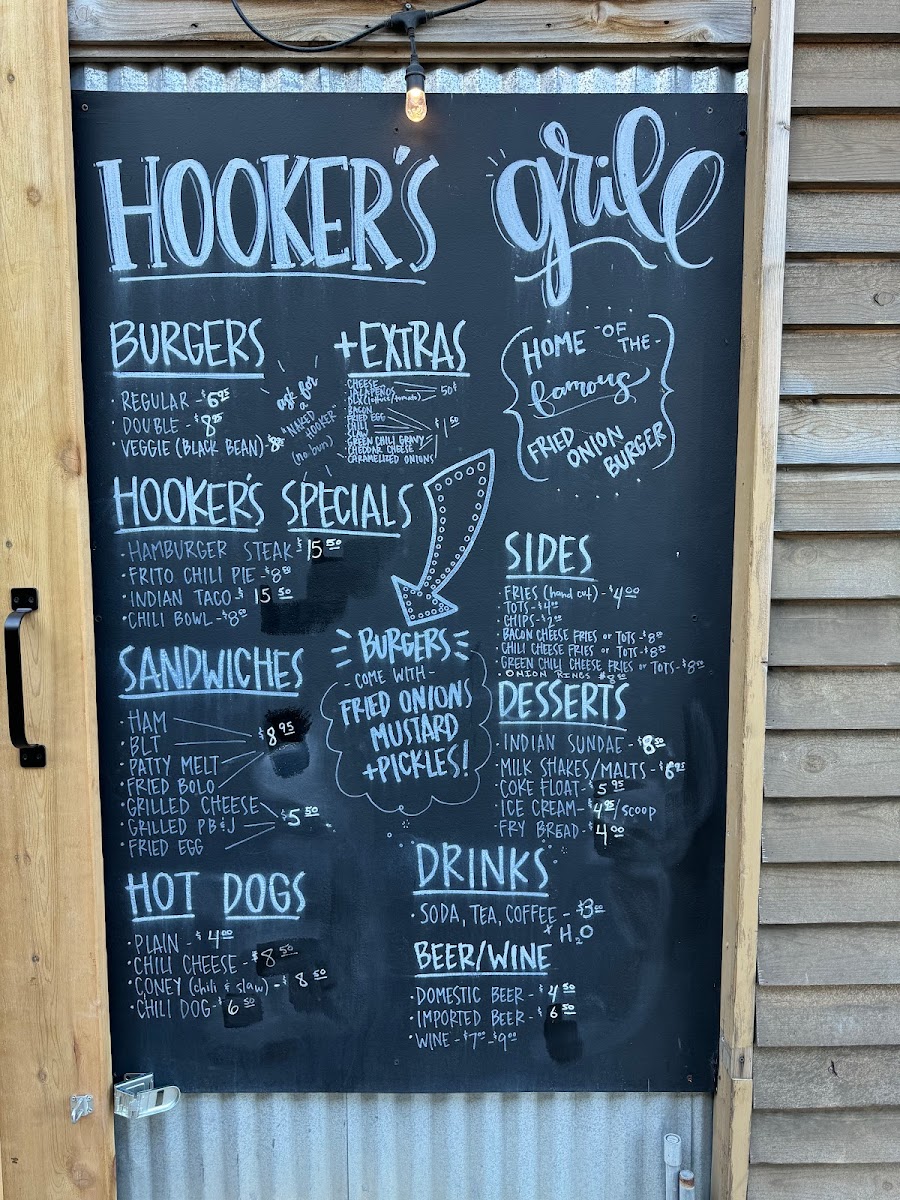 HOOKER'S grill
BURGERS
· REGULAR - $6.95
· DOUBLE - $8.95
· VEGGIE (BLACK BEAN) -
ask for
a
"NAKED
HOOKER"
(no bun)
+EXTRAS
CHEESE
JALAPEÑOS
DLX (lettuce/tomato)
50¢
BACON
FRIED EGG
CHILI
SLAW
GREEN CHILI GRAVY
CHEDDAR CHEESE
CARAMELIZED ONIONS
$1.50
HOME -OF THE-
famous
FRIED ONION BURGER
HOOKER'S SPECIALS
· HAMBURGER STEAK $15.50
· FRITO CHILI PIE - $8.50
· INDIAN TACO - $15.50
· CHILI BOWL - $8.50
BURGERS
- COME WITH -
FRIED ONIONS
MUSTARD
+PICKLES!
SANDWICHES
· HAM
· BLT
· PATTY MELT
· FRIED BOLO
$8.95
· GRILLED CHEESE
· GRILLED PB&J
· FRIED EGG
$5.50
HOT DOGS
· PLAIN - $4.00
· CHILI CHEESE - $8.50
· CONEY (chili & slaw) - $8.50
· CHILI DOG - $6.50
SIDES
· FRIES (hand cut) - $4.00
· TOTS - $4.00
· CHIPS - $2.00
· BACON CHEESE FRIES or TOTS - $8.00
· CHILI CHEESE FRIES or TOTS - $8.00
· GREEN CHILI CHEESE FRIES or TOTS - $8.00
· ONION RINGS
DESSERTS
· INDIAN SUNDAE - $8.50
· MILK SHAKES/MALTS - $6.95
· COKE FLOAT - $5.95
· ICE CREAM - $4.25/SCOOP
· FRY BREAD - $4.00
DRINKS
· SODA, TEA, COFFEE - $3.00
+ H2O
BEER/WINE
· DOMESTIC BEER - $4.50
· IMPORTED BEER - $6.50
· WINE - $7.00-$9.00